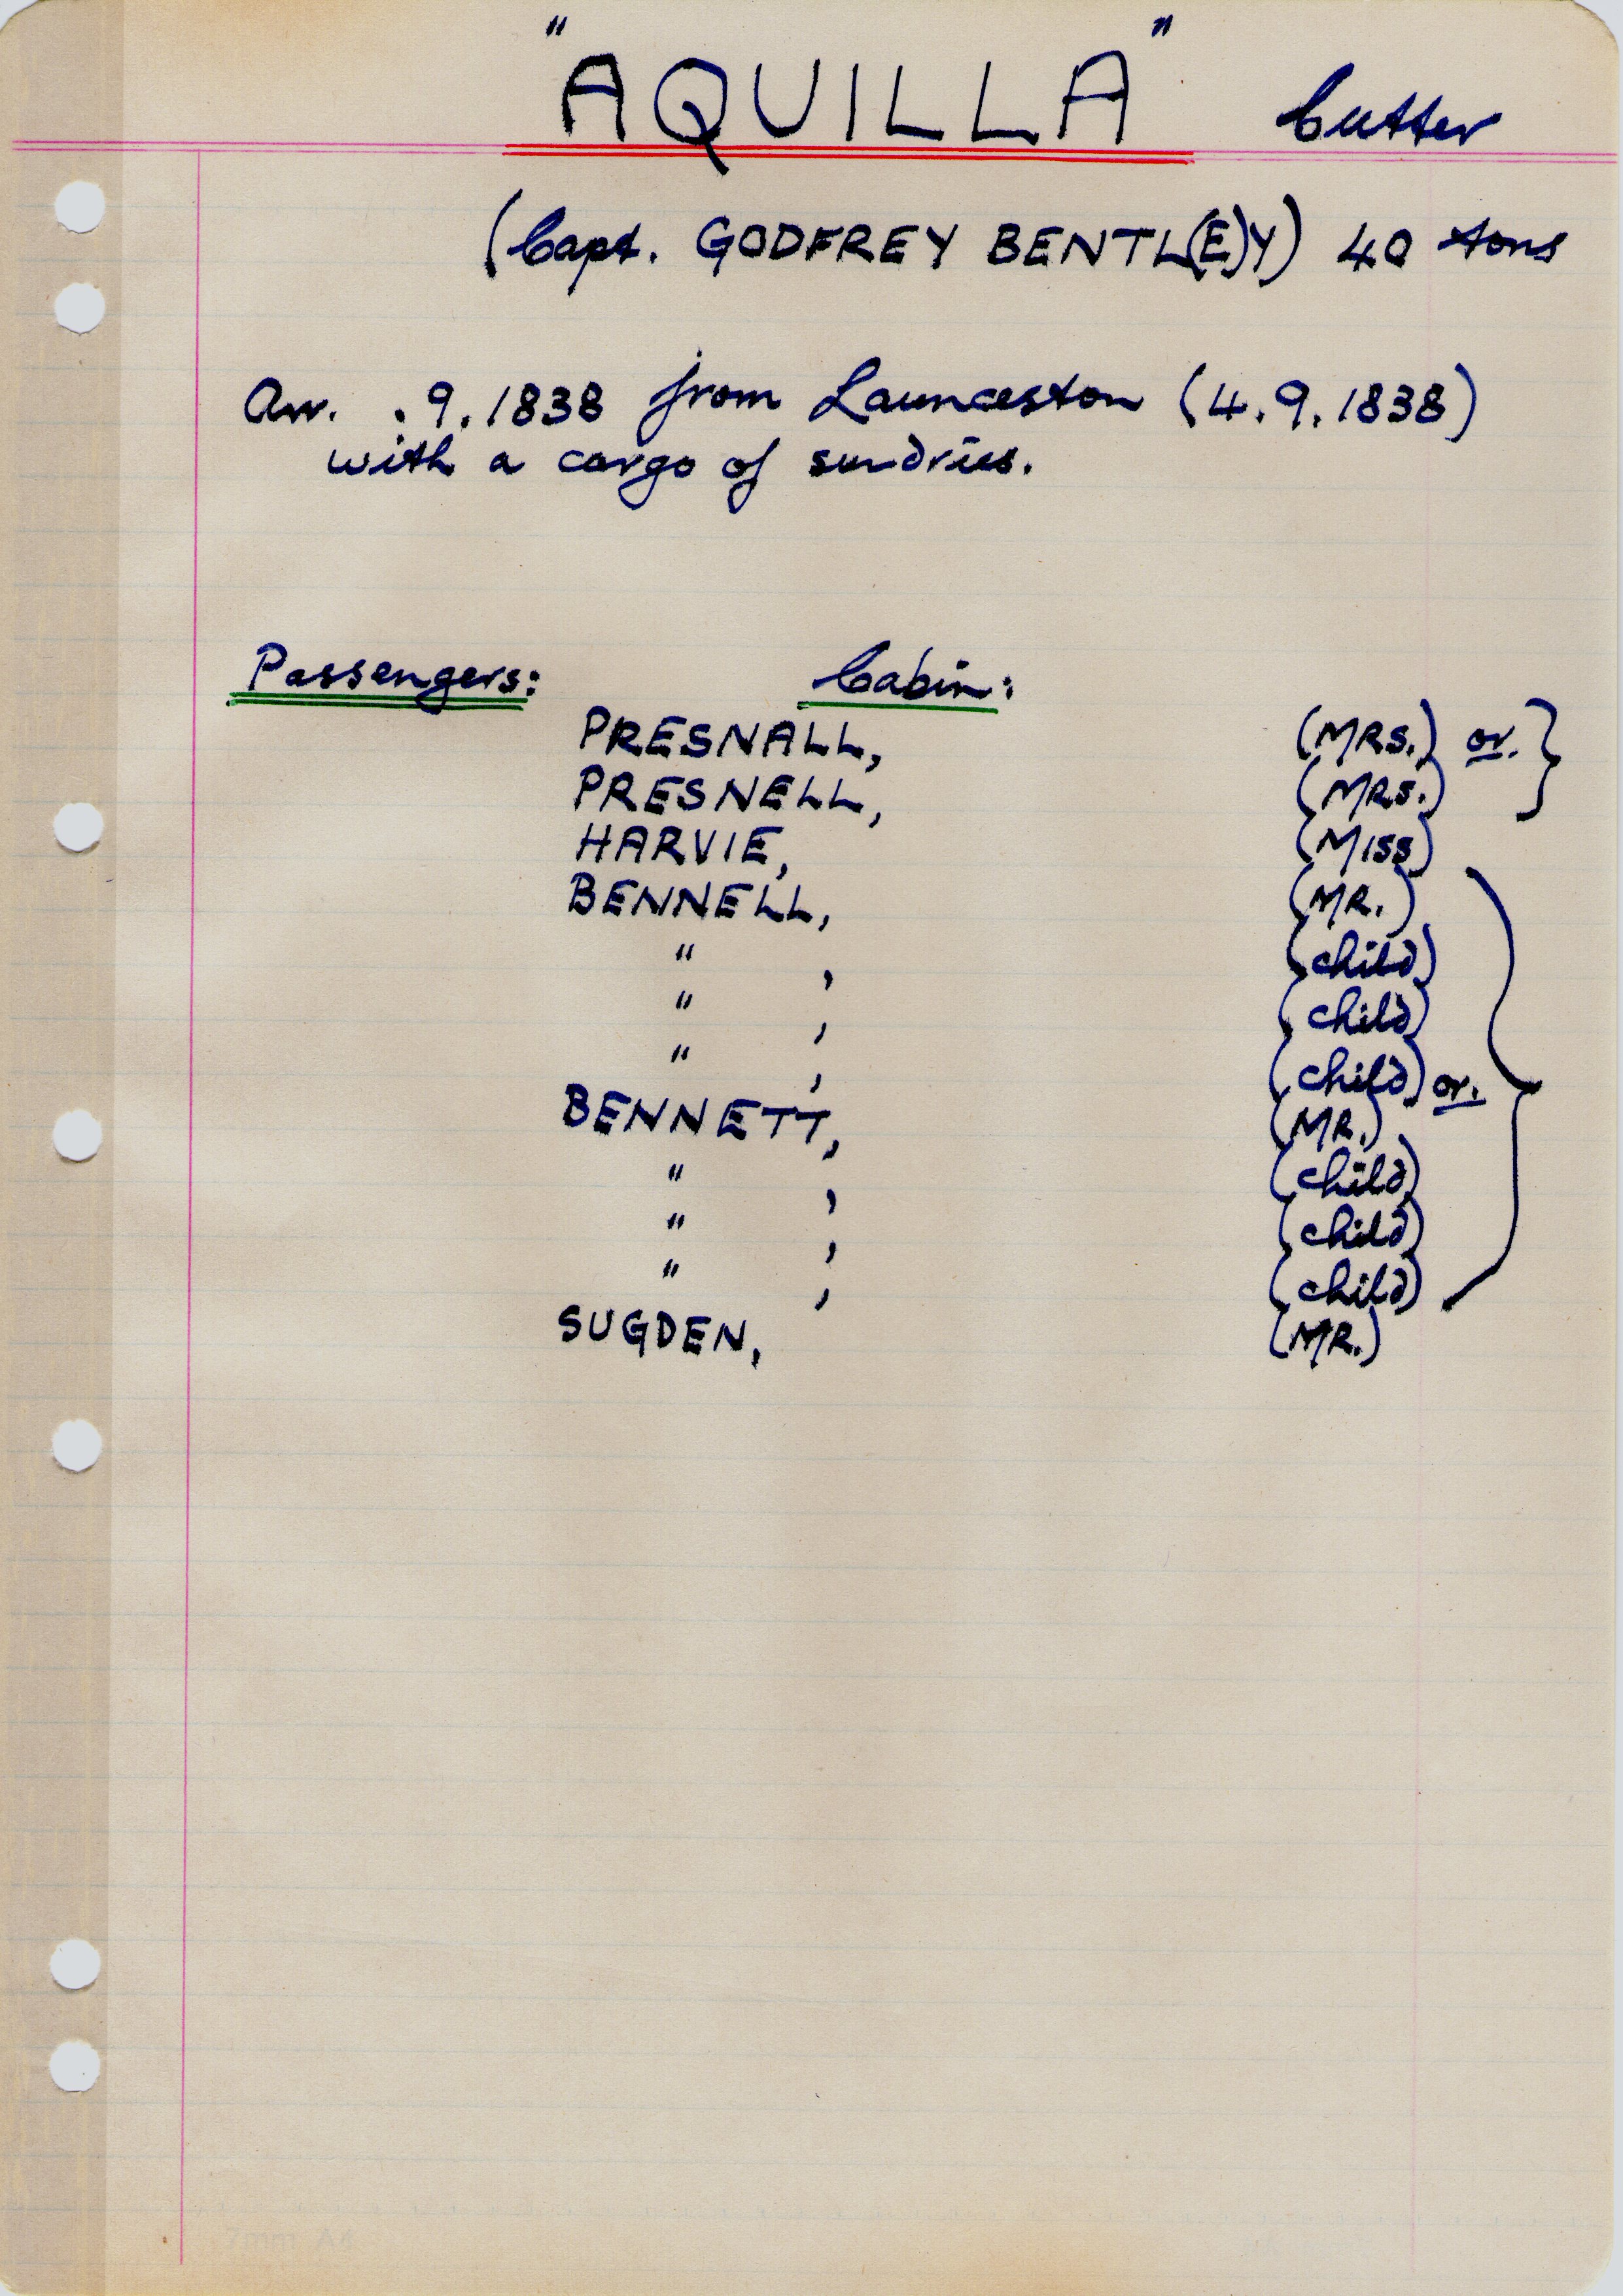 "AQUILLA" Cutter
(Capt. GODFREY BENTL(E)Y) 40 tons
Arr. .9.1838 from Launceston (4.9.1838)
with a cargo of sundries.
Passengers: Cabin:
PRESNALL, (MRS.) or.
PRESNELL, (MRS.)
HARVIE, (MISS)
BENNELL, (MR.)
" , (child)
" , (child)
" , (child) or.
BENNETT, (MR.)
" , (child)
" , (child)
" , (child)
SUGDEN, (MR.)